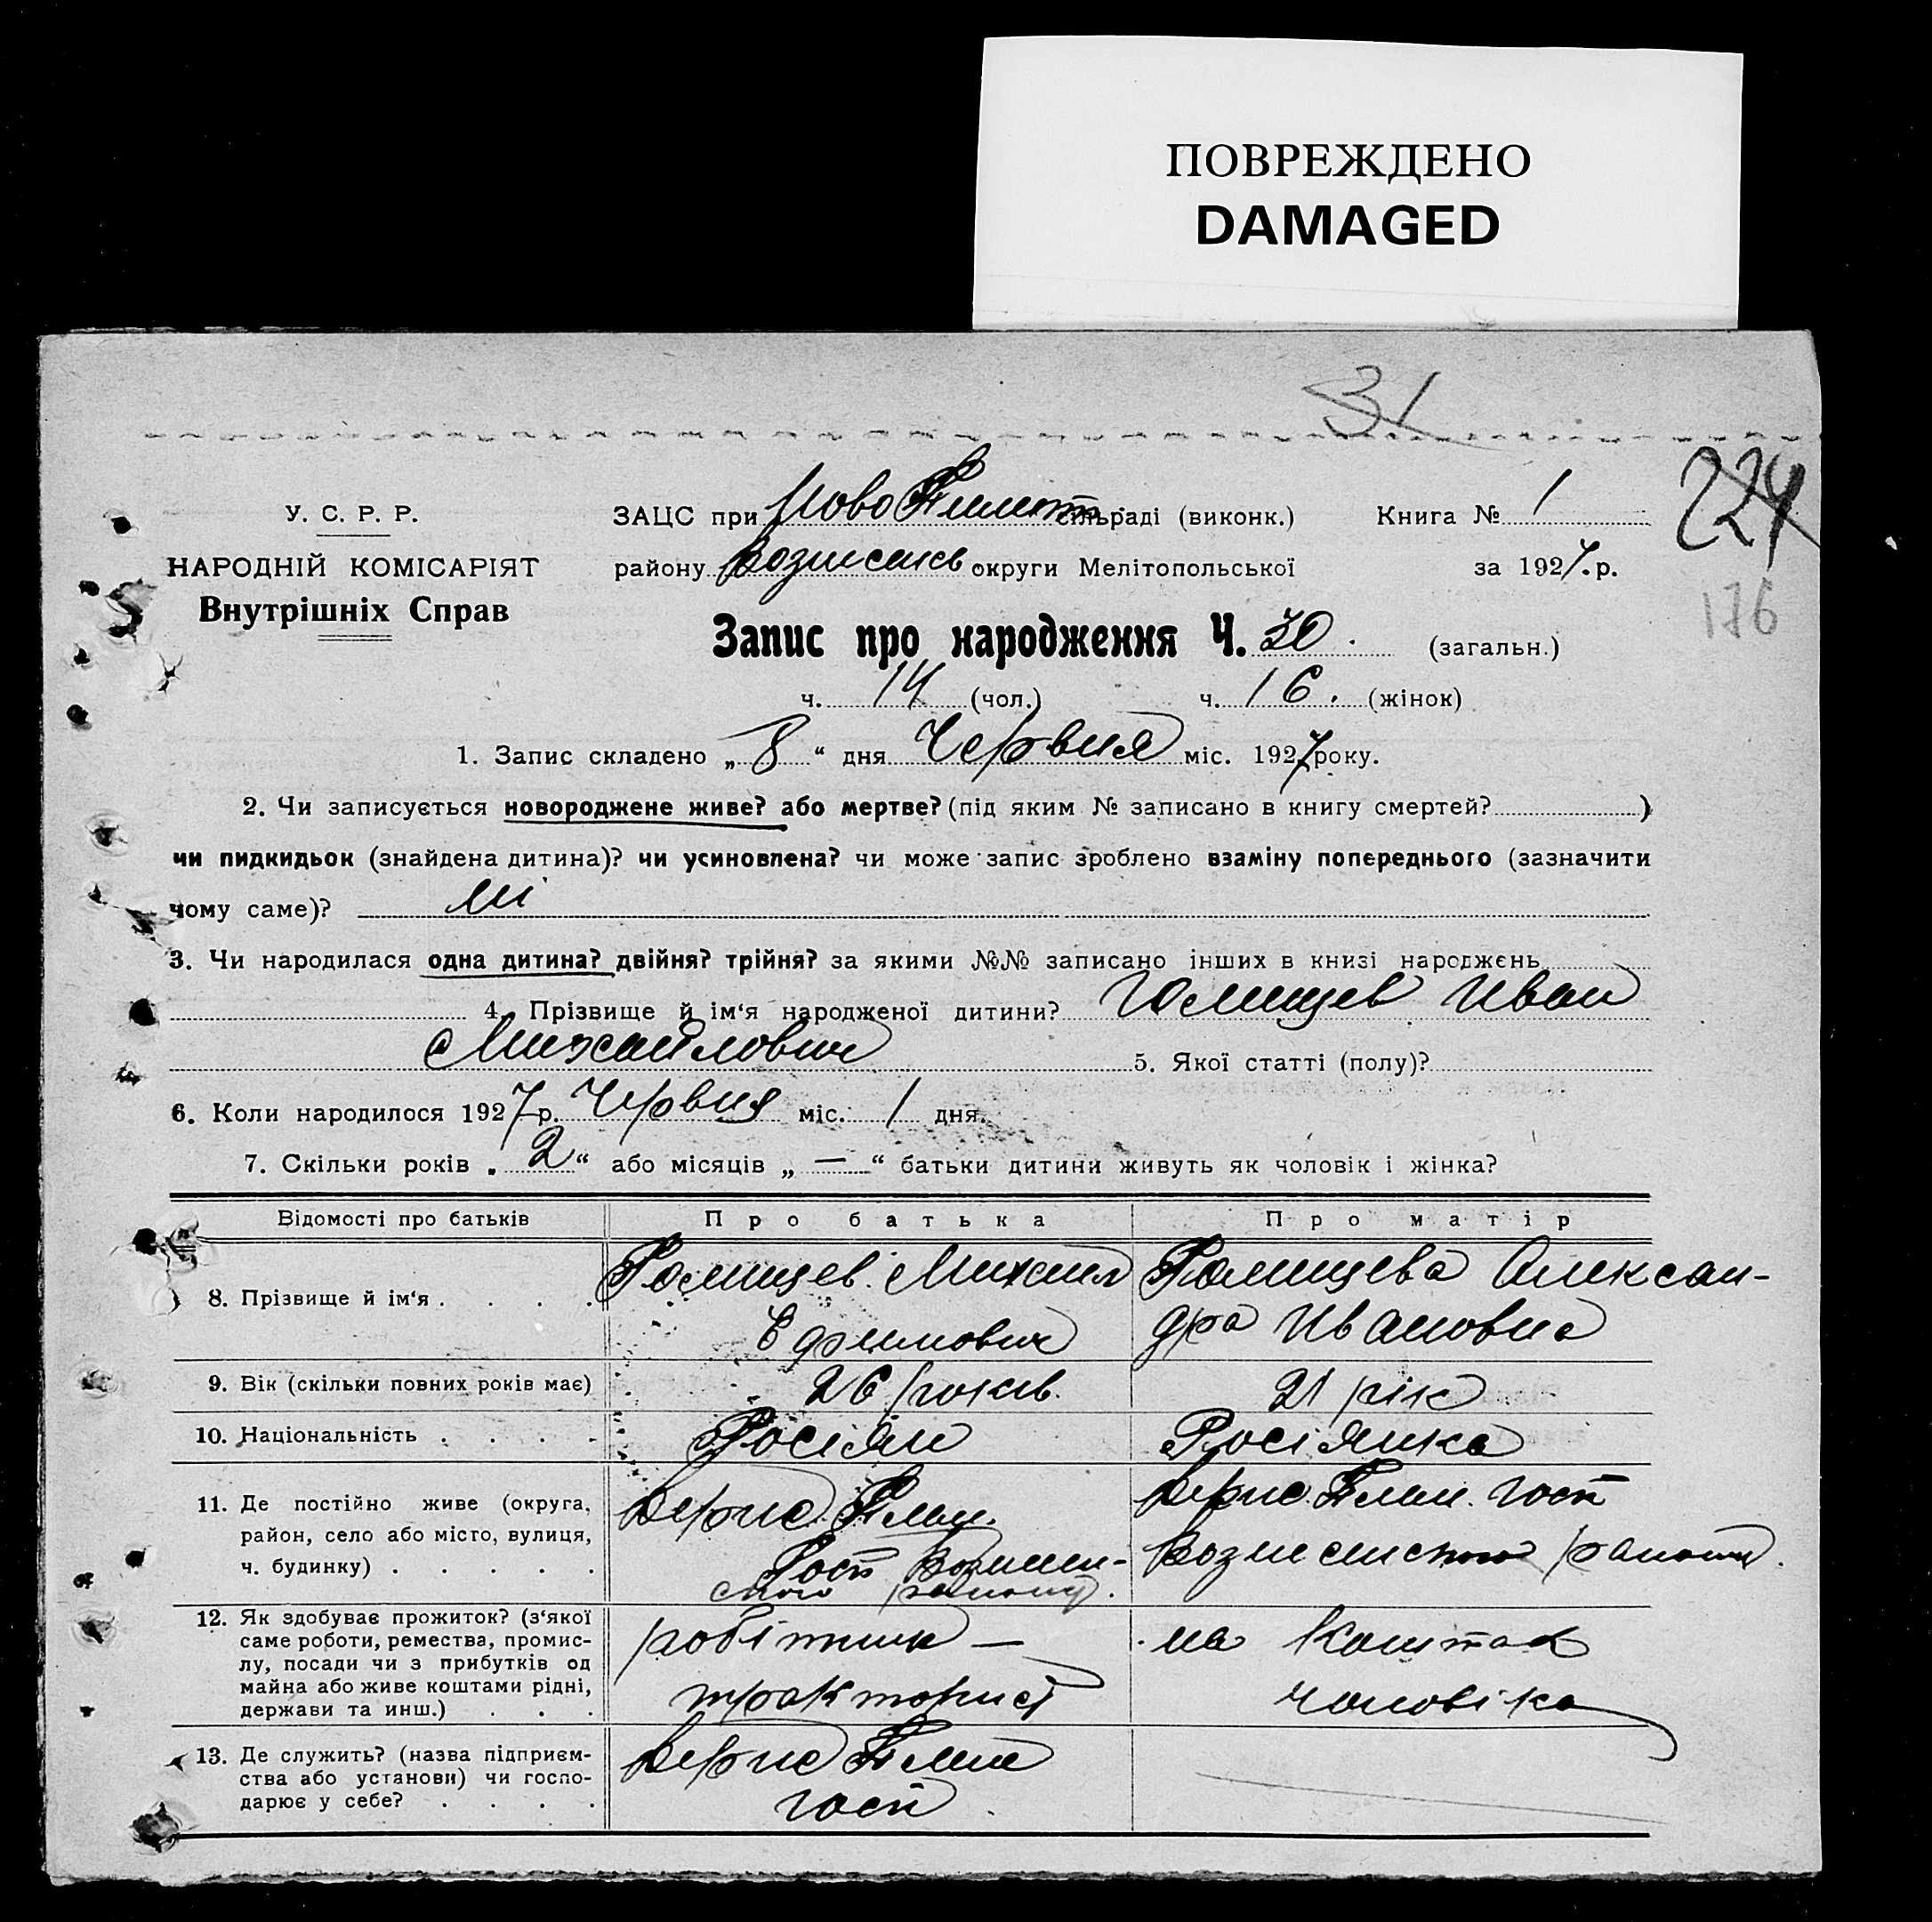 ПОВРЕЖДЕНО
DAMAGED
31
224
176
У. С. Р. Р.
НАРОДНІЙ КОМІСАРІЯТ
Внутрішніх Справ
ЗАЦС при Ново сільраді (виконк.) Книга № 1
району округи Мелітопольської за 1927 р.
Запис про народження Ч. 30. (загальн.)
ч. 14 (чол.) ч. 16. (жінок)
1. Запис складено „8“ дня Червня міс. 1927 року.
2. Чи записується новороджене живе? або мертве? (під яким № записано в книгу смертей? )
чи пидкидьок (знайдена дитина)? чи усиновлена? чи може запис зроблено взаміну попереднього (зазначити
чому саме)? ні
3. Чи народилася одна дитина? двійня? трійня? за якими №№ записано інших в книзі народжень
4. Прізвище й ім‘я народженої дитини? Голищев Иван
Михайлович 5. Якої статті (полу)?
6. Коли народилося 1927 р. Червня міс. 1 дня.
7. Скільки років „2“ або місяців „—“ батьки дитини живуть як чоловік і жінка?
Відомості про батьків Про батька Про матір
8. Прізвище й ім‘я . . . . Голищев Михаил Голищева Алексан-
Ефимович дра Ивановна
9. Вік (скільки повних років має) 26 років. 21 рік
10. Національність . . . . Росіян Росіянка
11. Де постійно живе (округа,
район, село або місто, вулиця,
ч. будинку) . . . . .
Держ. Плем. Держ. Плем. Госп
Госп Вознесен- Вознесенского району.
ского району.
12. Як здобуває прожиток? (з‘якої
саме роботи, ремества, промис-
лу, посади чи з прибутків од
майна або живе коштами рідні,
держави та инш.) . . .
робітник — на коштах
тракторист чоловіка
13. Де служить? (назва підприєм-
ства або установи) чи госпо-
дарює у себе? . . . .
Держ Плем
госп